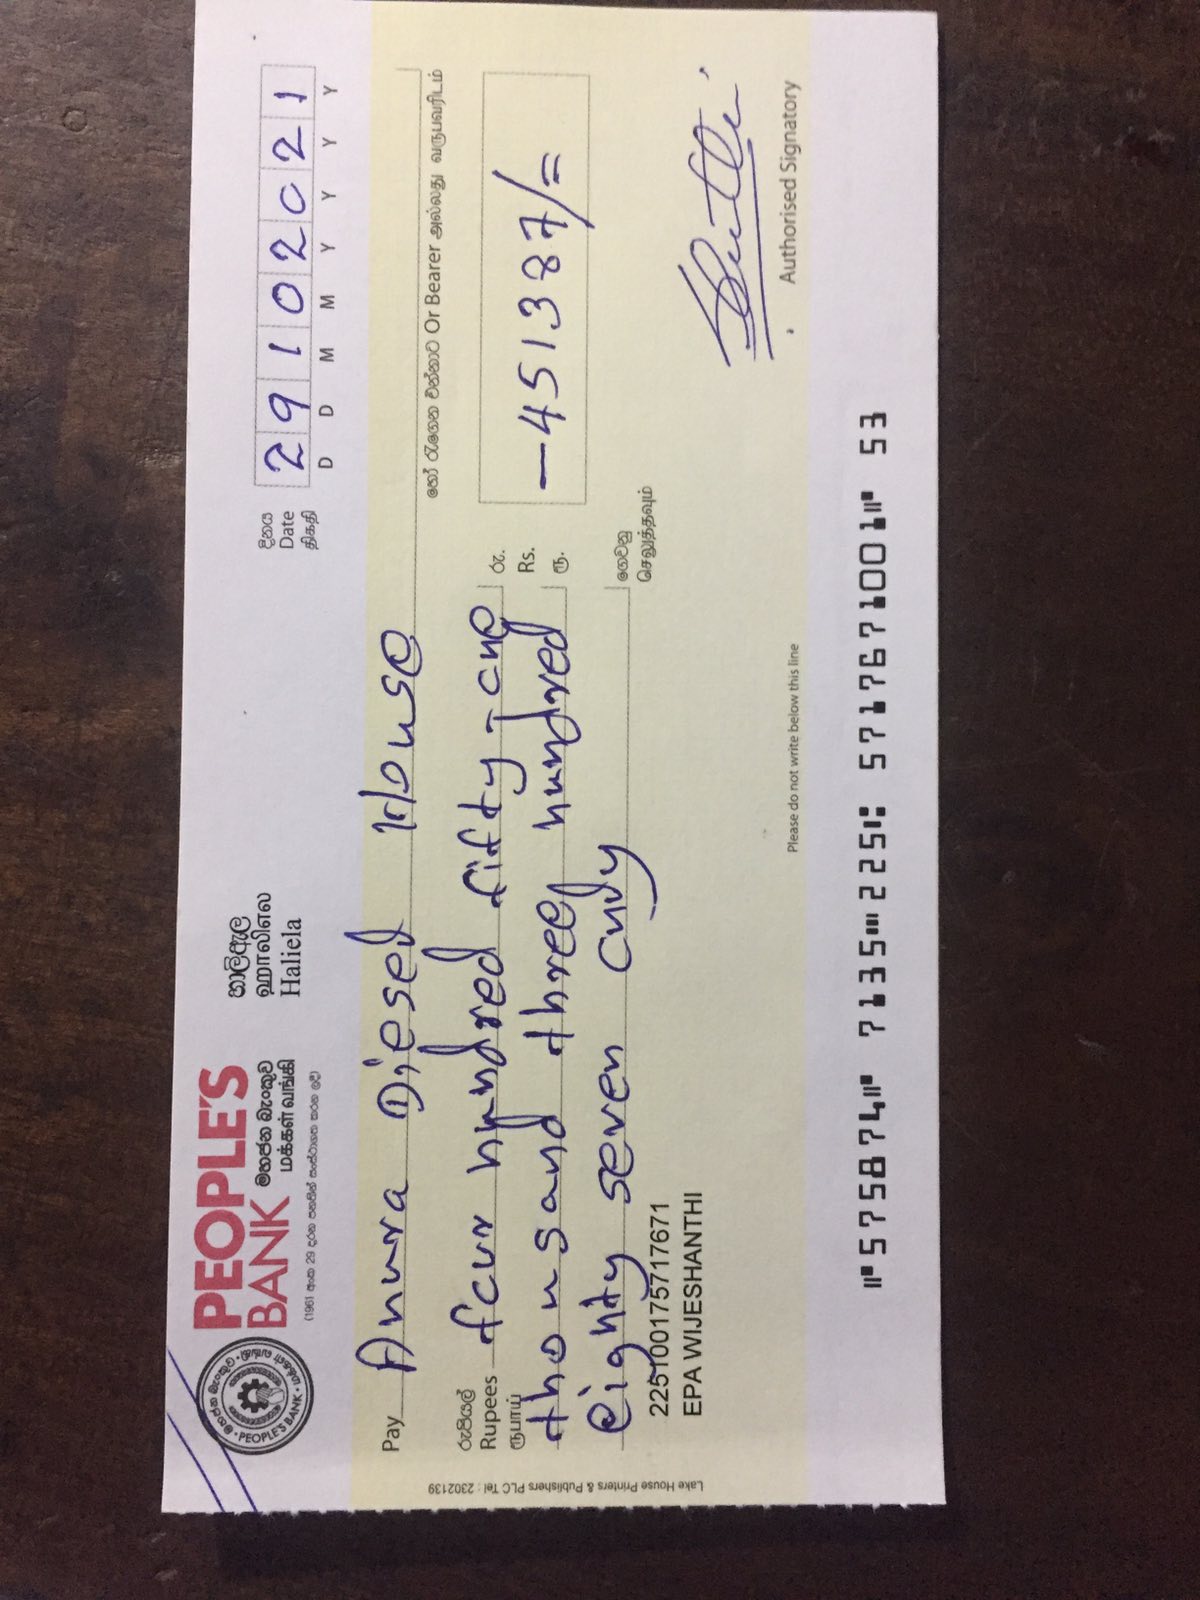 PEOPLE'S
BANK
මහජන බැංකුව
மக்கள் வங்கி
(1961 අංක 29 දරන පනතින් සංස්ථාගත කරන ලදි)
PEOPLE'S BANK
හාලිඇල
ஹாலிஎல
Haliela
දිනය
Date
திகதி
2 9 1 0 2 0 2 1
D D M M Y Y Y Y
Pay Anura Diesel House
හෝ රැගෙන එන්නාට Or Bearer அல்லது வருபவரிடம்
රුපියල්
Rupees
ரூபாய்
four hundred fifty-one
thousand three hundred
eighty seven only
රු.
Rs.
ரூ.
—451387/=
ගෙවනු
செலுத்தவும்
225100175717671
EPA WIJESHANTHI
Authorised Signatory
Please do not write below this line
⑈575874⑈ 7135⑉225⑆ 5717671001⑈ 53
Lake House Printers & Publishers PLC Tel : 2302139